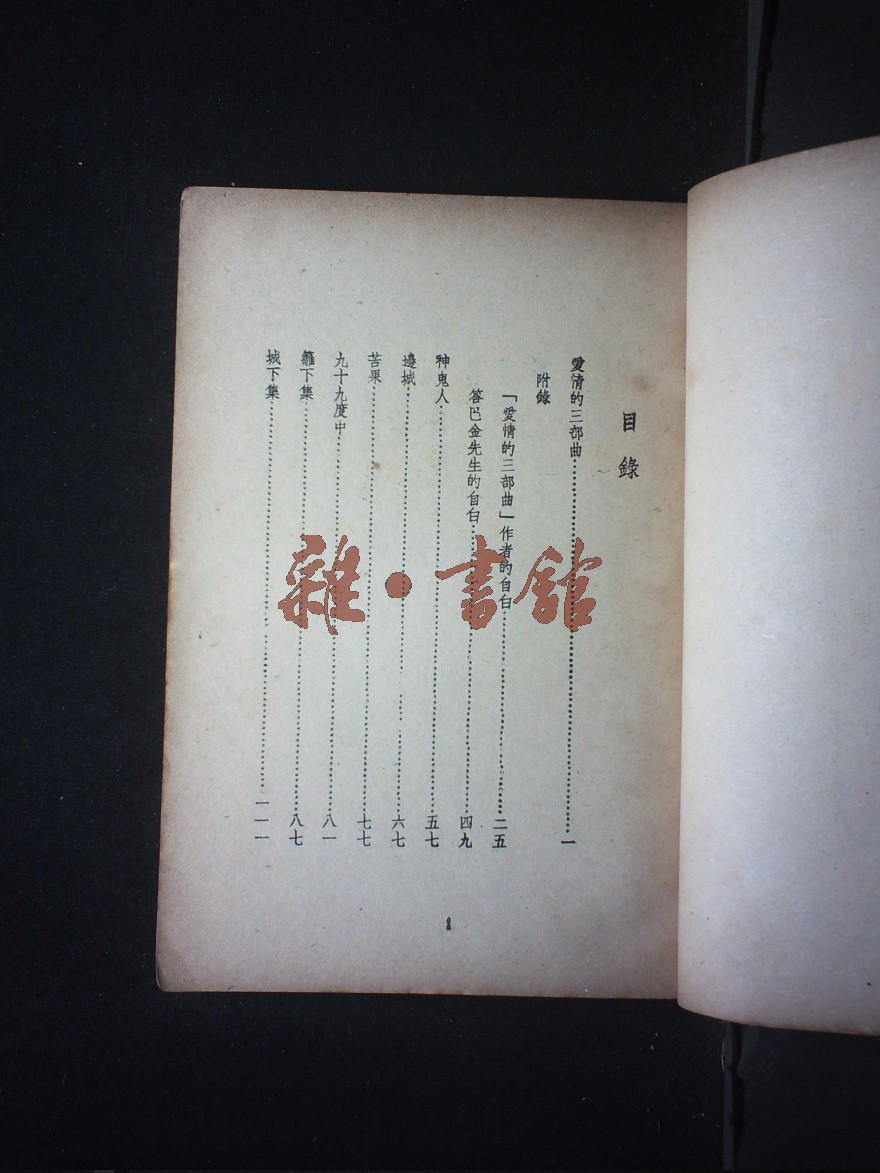 目錄
愛情的三部曲……一
附錄
「愛情的三部曲」作者的自白……二五
答巴金先生的自白……四九
神鬼人……五七
邊城……六七
苦果……七七
九十九度中……八一
籬下集……八七
城下集……一一一
1
雜·書館